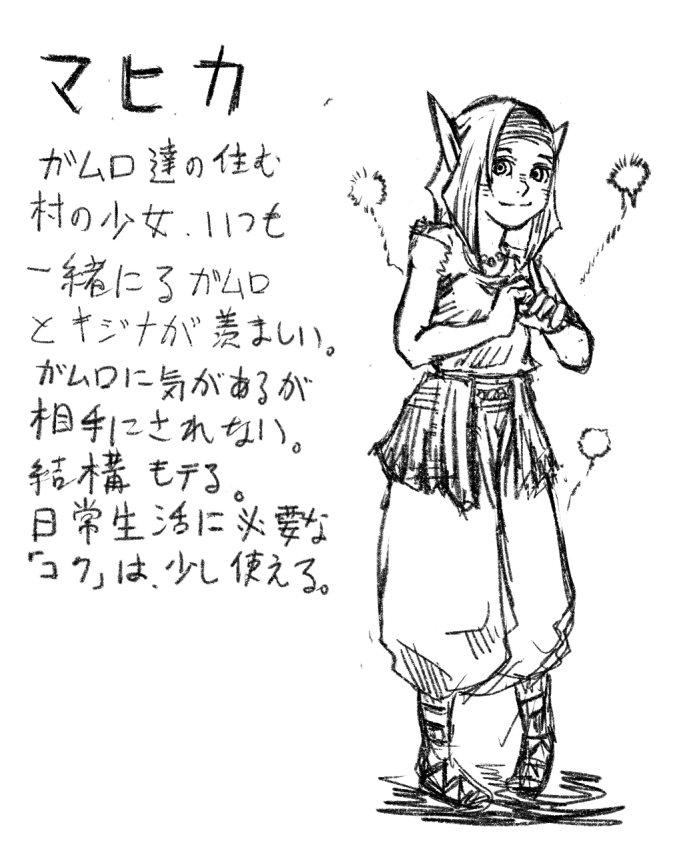 マヒカ
ガムロ達の住む
村の少女、いつも
一緒にるガムロ
とキジナが羨ましい。
ガムロに気があるが
相手にされない。
結構モテる。
日常生活に必要な
「コク」は、少し使える。